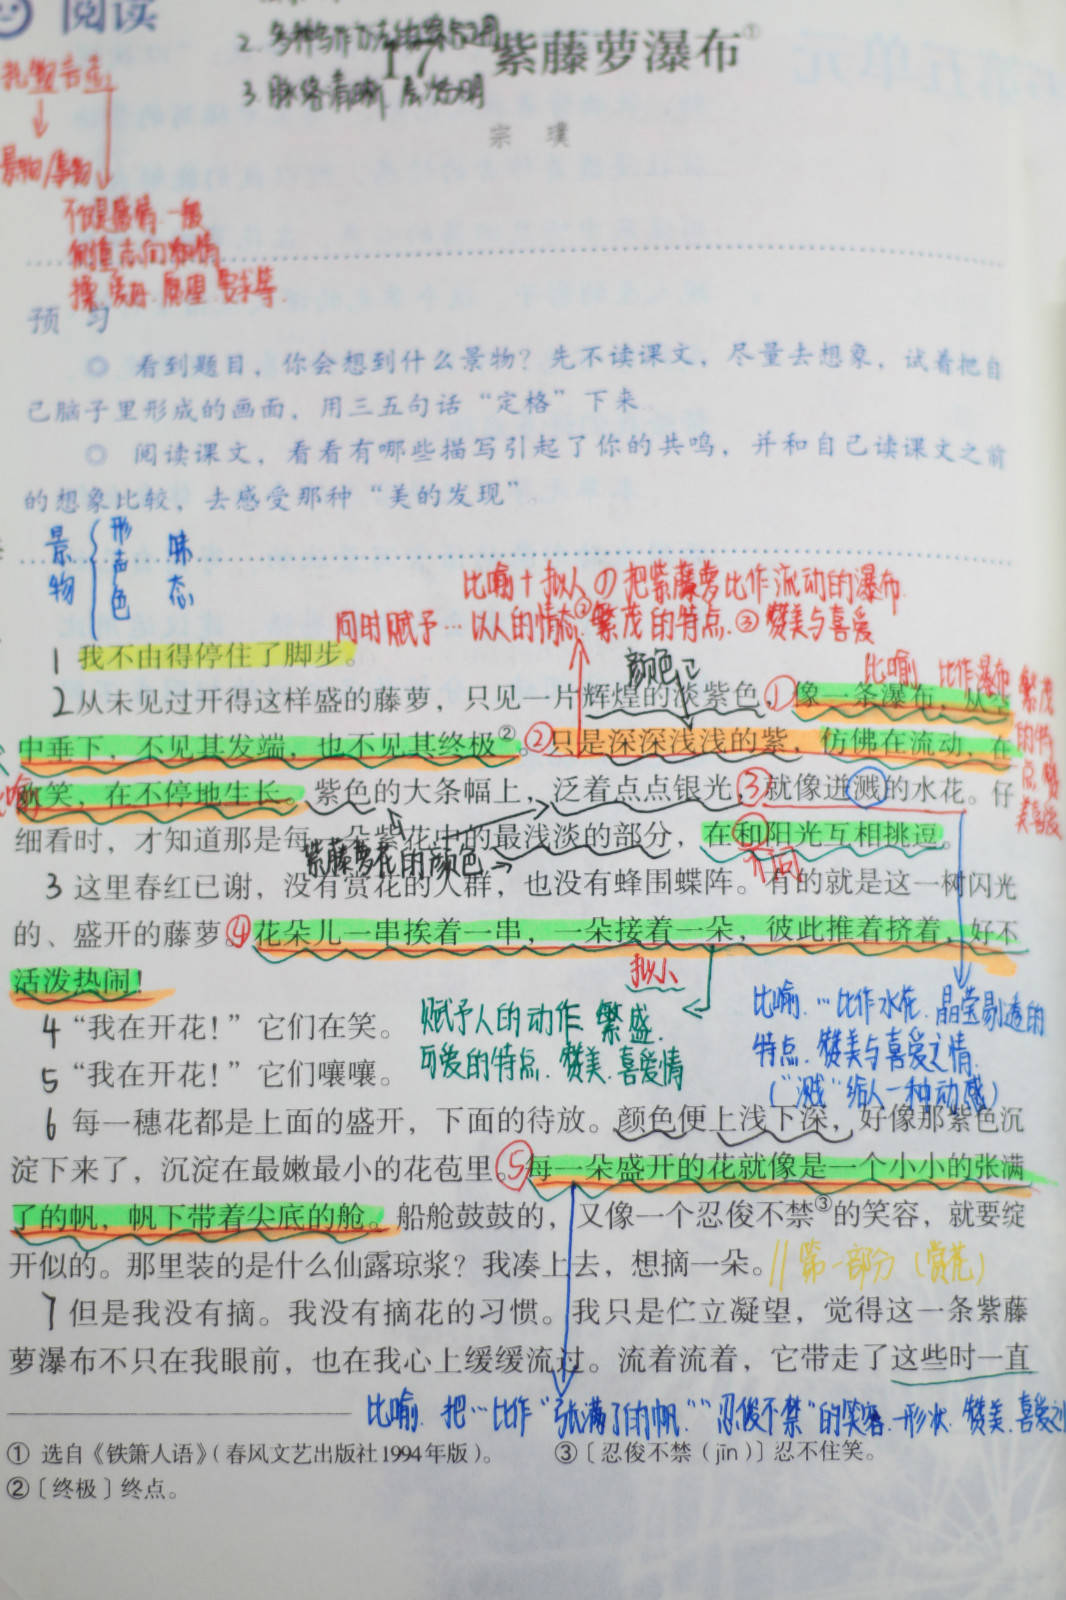 阅读
2.多种写作方法
17 紫藤萝瀑布①
3.脉络清晰 层次分明
宗 璞
托物言志
景物/事物
不仅是感情 一般
侧重志向 情
操 爱好 原理 要求等
预 习
◎ 看到题目，你会想到什么景物？先不读课文，尽量去想象，试着把自
己脑子里形成的画面，用三五句话“定格”下来
◎ 阅读课文，看看有哪些描写引起了你的共鸣，并和自己读课文之前
的想象比较，去感受那种“美的发现”。
景物 形声色 味态
比喻+拟人 ①把紫藤萝比作流动的瀑布
同时赋予…以人的情态②繁茂的特点.③赞美与喜爱
1 我不由得停住了脚步。
颜色
比喻 比作瀑布 繁茂的特点 赞美喜爱
2从未见过开得这样盛的藤萝，只见一片辉煌的淡紫色，①像一条瀑布，从空
中垂下，不见其发端，也不见其终极②。②只是深深浅浅的紫，仿佛在流动，在
欢笑，在不停地生长。紫色的大条幅上，泛着点点银光，③就像迸溅的水花。仔
细看时，才知道那是每一朵紫花中的最浅淡的部分，在和阳光互相挑逗。
紫藤萝花的颜色
3 这里春红已谢，没有赏花的人群，也没有蜂围蝶阵。有的就是这一树闪光
的、盛开的藤萝。④花朵儿一串挨着一串，一朵接着一朵，彼此推着挤着，好不
活泼热闹！
拟人
4 “我在开花！”它们在笑。
5 “我在开花！”它们嚷嚷。
赋予人的动作 繁盛.
可爱的特点. 赞美.喜爱情
比喻.…比作水花.晶莹剔透的
特点.赞美与喜爱之情.
（“溅”给人一种动感）
6 每一穗花都是上面的盛开，下面的待放。颜色便上浅下深，好像那紫色沉
淀下来了，沉淀在最嫩最小的花苞里。⑤每一朵盛开的花就像是一个小小的张满
了的帆，帆下带着尖底的舱。船舱鼓鼓的，又像一个忍俊不禁③的笑容，就要绽
开似的。那里装的是什么仙露琼浆？我凑上去，想摘一朵。//第一部分（赏花）
7 但是我没有摘。我没有摘花的习惯。我只是伫立凝望，觉得这一条紫藤
萝瀑布不只在我眼前，也在我心上缓缓流过。流着流着，它带走了这些时一直
比喻.把…比作“张满了的帆”“忍俊不禁”的笑容.形状.赞美.喜爱之
① 选自《铁箫人语》（春风文艺出版社1994年版）。
③〔忍俊不禁（jīn）〕忍不住笑。
②〔终极〕终点。